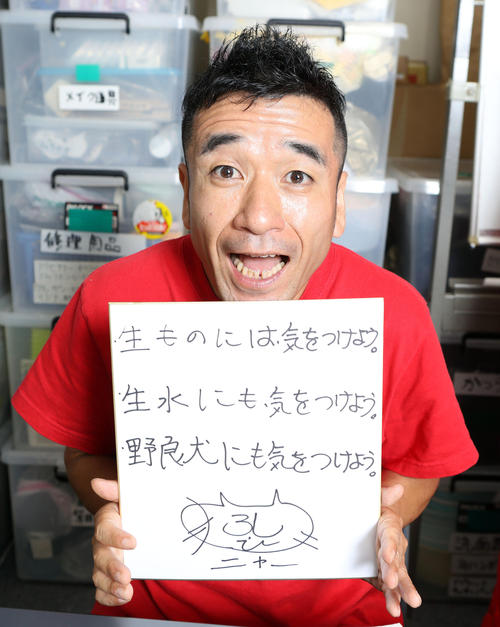 メイク
修理用品
・生ものには気をつけよう。
・生水にも気をつけよう。
・野良犬にも気をつけよう。
ニャー